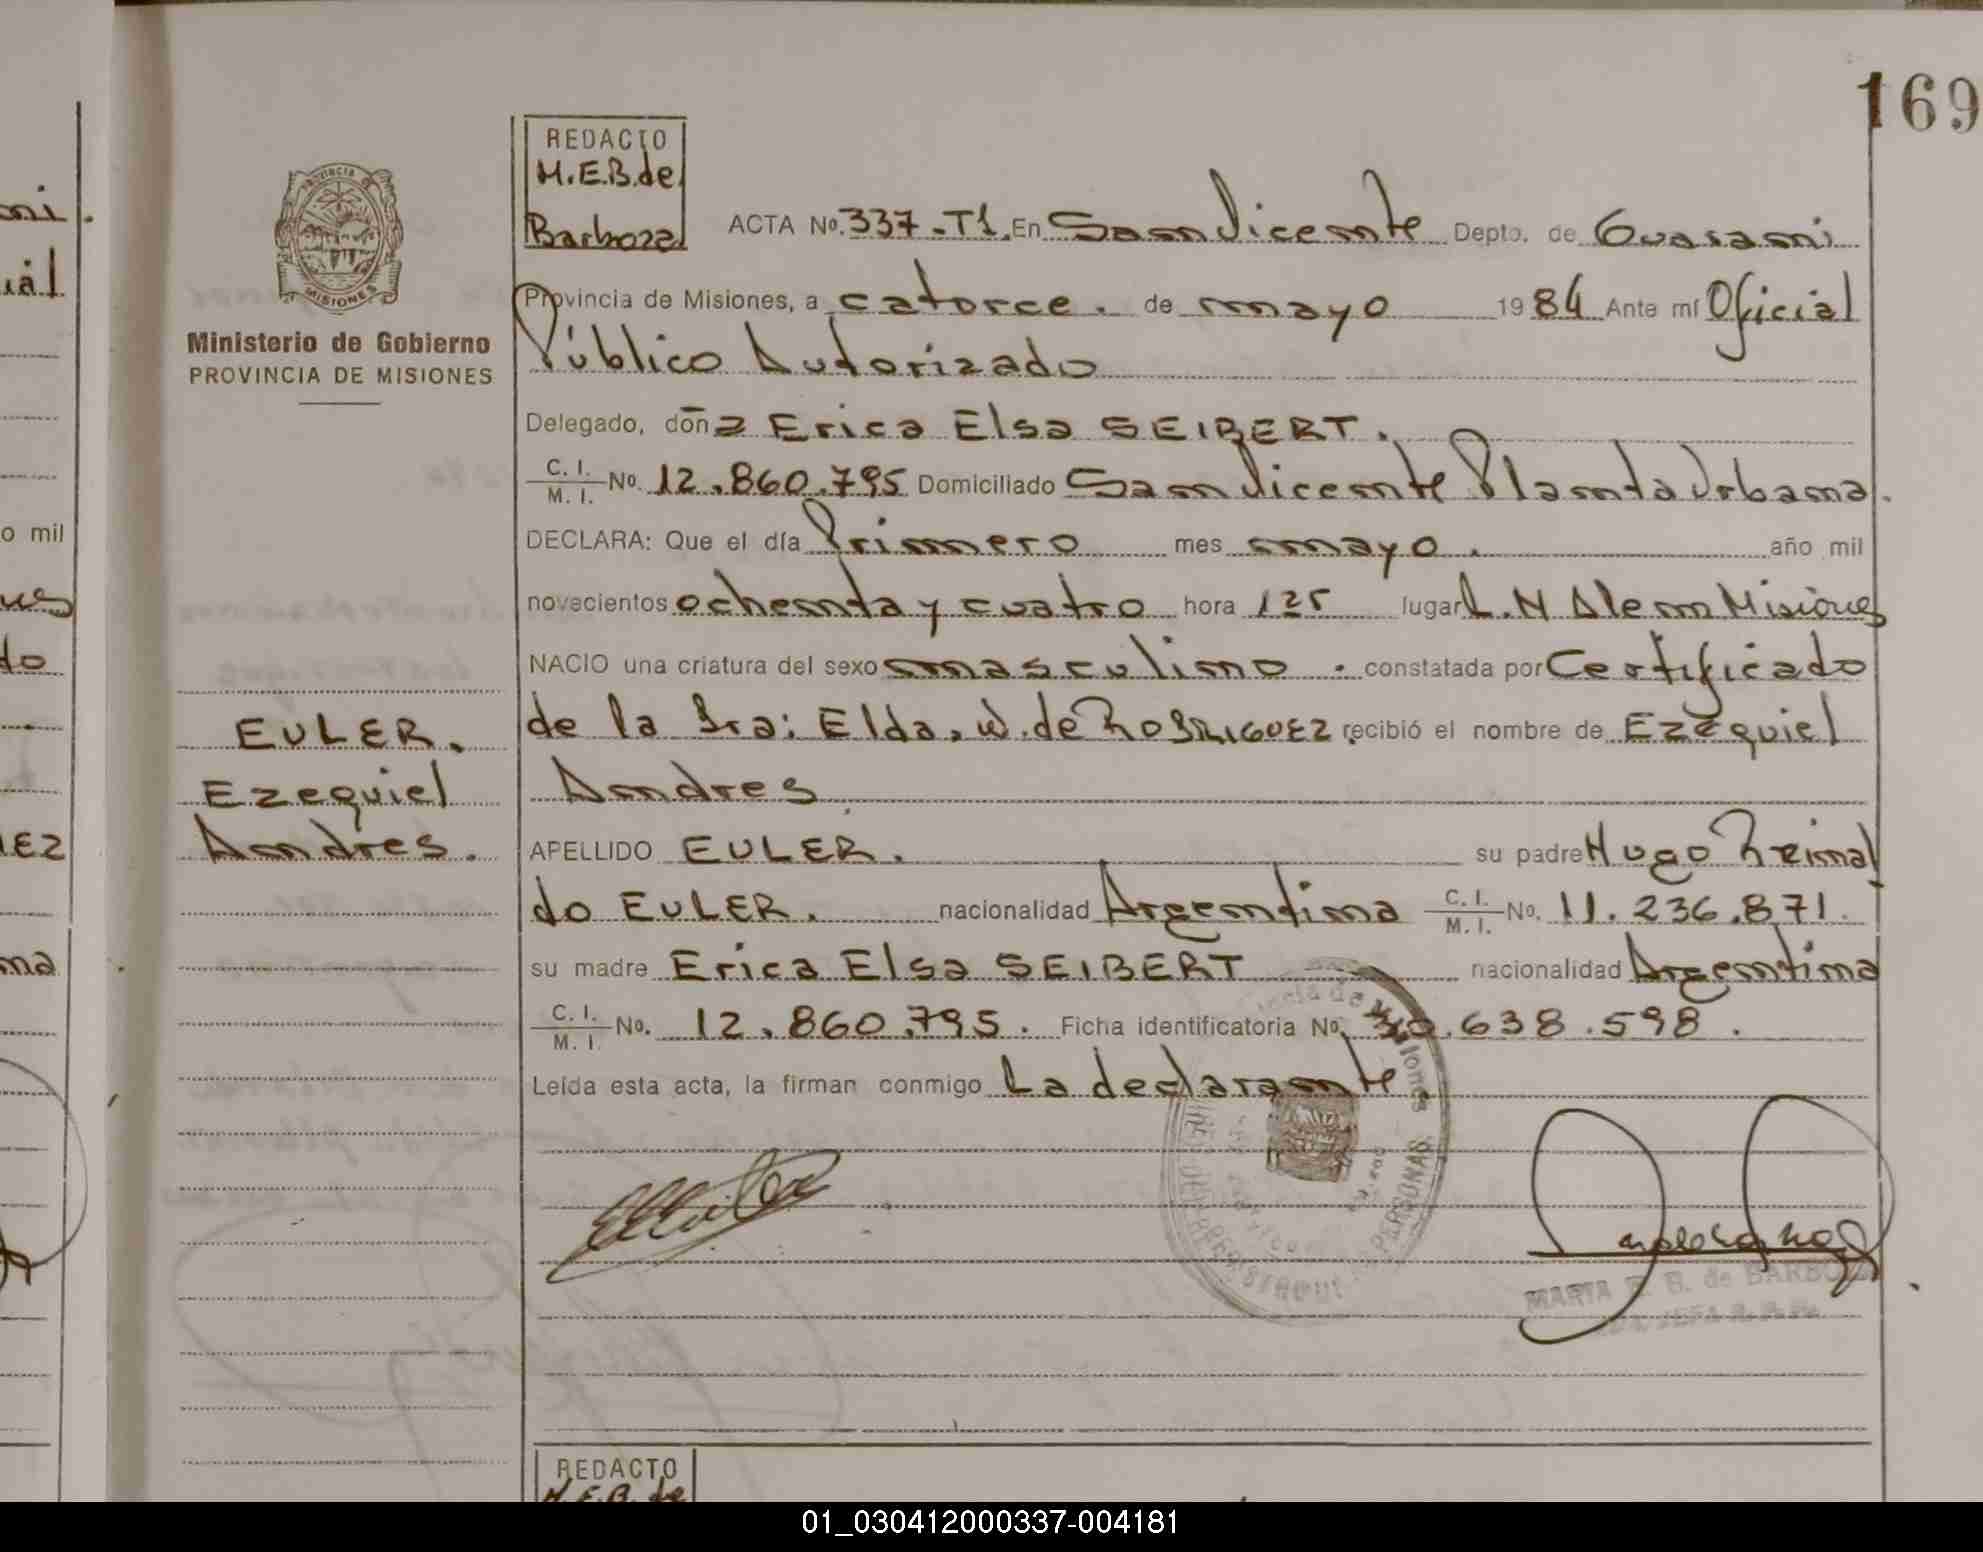 169
REDACTO
M.E.B.de
Barboza
ACTA No. 337-T1. En San Vicente Depto. de Guarani
Provincia de Misiones, a catorce. de mayo 1984 Ante mí Oficial
Público Autorizado
Delegado, doña Erica Elsa SEIBERT.
C. I. / M. I. No. 12.860.795 Domiciliado San Vicente Planta Urbana.
DECLARA: Que el día Primero mes mayo. año mil
novecientos ochenta y cuatro hora 125 lugar L.N Alem Misiones
NACIO una criatura del sexo masculino. constatada por Certificado
de la Sra: Elda. W. de RODRIGUEZ recibió el nombre de Ezequiel
Andres
APELLIDO EULER. su padre Hugo Reinal
do EULER. nacionalidad Argentina C. I. / M. I. No. 11.236.871.
su madre Erica Elsa SEIBERT nacionalidad Argentina
C. I. / M. I. No. 12.860.795. Ficha identificatoria No. 30.638.598.
Leída esta acta, la firman conmigo La declarante.
Provincia de Misiones
MARTA E. B. de BARBOZA
PROVINCIA DE MISIONES
Ministerio de Gobierno
PROVINCIA DE MISIONES
EULER.
Ezequiel
Andres.
ni.
ial
o mil
ues
do
UEZ
na
REDACTO
M.E.B. de
01_030412000337-004181